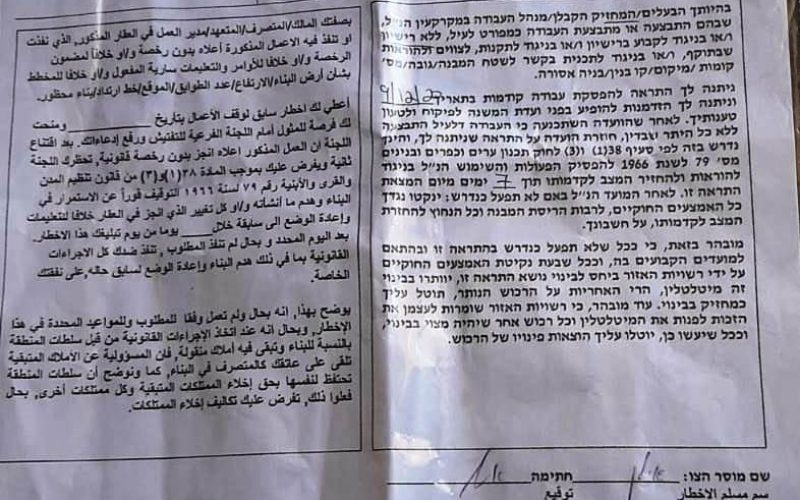 בהיותך הבעלים/המחזיק הקבלן/מנהל העבודה במקרקעין הנ"ל,
שבהם התבצעה או מתבצעת העבודה כמפורט לעיל, ללא רישיון
ו/או בניגוד לקבוע ברישיון ו/או בניגוד לתקנות, לצווים ולהוראות
שבתוקף, ו/או בניגוד לתכנית בקשר לשטח המבנה/גובה/מס'
קומות /מיקום/קו בנין/בניה אסורה.
ניתנה לך התראה להפסקת עבודה קודמות בתאריך 9/12/22
וניתנה לך הזדמנות להופיע בפני ועדת המשנה לפיקוח ולטעון
טענותיך. לאחר שהוועדה השתכנעה כי העבודה דלעיל התבצעה
ללא כל היתר שבדין, חוזרת הועדה על התראה שניתנה לך, והינך
נדרש בזה לפי סעיף 38(1) ו(3) לחוק תכנון ערים וכפרים ובניינים
מס' 79 לשנת 1966 להפסיק הפעולות והשימוש הנ"ל בניגוד
להוראות ולהחזיר המצב לקדמותו תוך 7 ימים מיום המצאת
התראה זו. לאחר המועד הנ"ל באם לא תפעל כנדרש: ינקטו נגדך
כל האמצעים החוקיים, לרבות הריסת המבנה וכל הנחוץ להחזרת
המצב לקדמותו, על חשבונך.
מובהר בזאת, כי ככל שלא תפעל כנדרש בהתראה זו ובהתאם
למועדים הקבועים בה, וככל שבעת נקיטת האמצעים החוקיים
על ידי רשויות האזור ביחס לבינוי נושא התראה זו, יוותרו בבינוי
זה מיטלטלין, הרי האחריות על הרכוש הנותר, תוטל עליך
כמחזיק בבינוי. עוד מובהר, כי רשויות האזור שומרות לעצמן את
הזכות לפנות את המיטלטלין וכל רכוש אחר שיהיה מצוי בבינוי,
וככל שיעשו כן, יוטלו עליך הוצאות פינויו של הרכוש.
بصفتك المالك/المتصرف/المتعهد/مدير العمل في العقار المذكور, الذي نفذت
او تنفذ فيه الاعمال المذكورة أعلاه بدون رخصة و/او خلافا لمضمون
الرخصة و/او خلافا للأوامر والتعليمات سارية المفعول و/او خلافا للمخطط
بشأن أرض البناء/الارتفاع/عدد الطوابق/الموقع/خط ارتداد/بناء محظور.
أعطي لك اخطار سابق لوقف الأعمال بتاريخ ومنحت
لك فرصة للمثول أمام اللجنة الفرعية للتفتيش ورفع إدعاءاتك. بعد اقتناع
اللجنة أن العمل المذكور اعلاه انجز بدون رخصة قانونية, تحظرك اللجنة
ثانية ويفرض عليك بموجب المادة ٣٨(١)و(٣) من قانون تنظيم المدن
والقرى والأبنية رقم ٧٩ لسنة ١٩٦٦ التوقيف فوراً عن الاستمرار في
البناء وهدم ما أنشأته و/او كل تغيير الذي انجز في العقار خلافا للتعليمات
وإعادة الوضع الى سابقة خلال يوما من يوم تبليغك هذا الاخطار.
بعد اليوم المحدد و بحال لم تنفذ المطلوب , تنفذ ضدك كل الاجراءات
القانونية بما في ذلك هدم البناء وإعادة الوضع لسابق حاله, على نفقتك
الخاصة.
يوضح بهذا, انه بحال ولم تعمل وفقا للمطلوب وللمواعيد المحددة في هذا
الإخطار, وبحال انه عند اتخاذ الإجراءات القانونية من قبل سلطات المنطقة
بالنسبة للبناء وتبقى فيه أملاك منقولة, فان المسؤولية عن الأملاك المتبقية
تلقى على عاتقك كالمتصرف في البناء, كما ونوضح أن سلطات المنطقة
تحتفظ لنفسها بحق إخلاء الممتلكات المتبقية وكل ممتلكات أخرى, بحال
فعلوا ذلك, تفرض عليك تكاليف إخلاء الممتلكات.
שם מוסר הצו: חתימה
اسم مسلم الإخطار توقيع